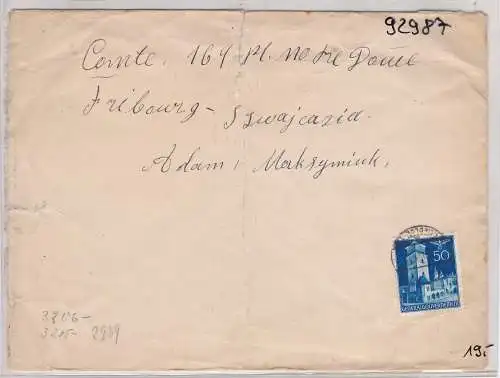 92987
Comte. 164 Pl. Notre Dame
Fribourg - Szwajcazia.
Adam Maksymiuk,
50
GENERALGOUVERNEMENT
3206-
3215- 2939
19,-